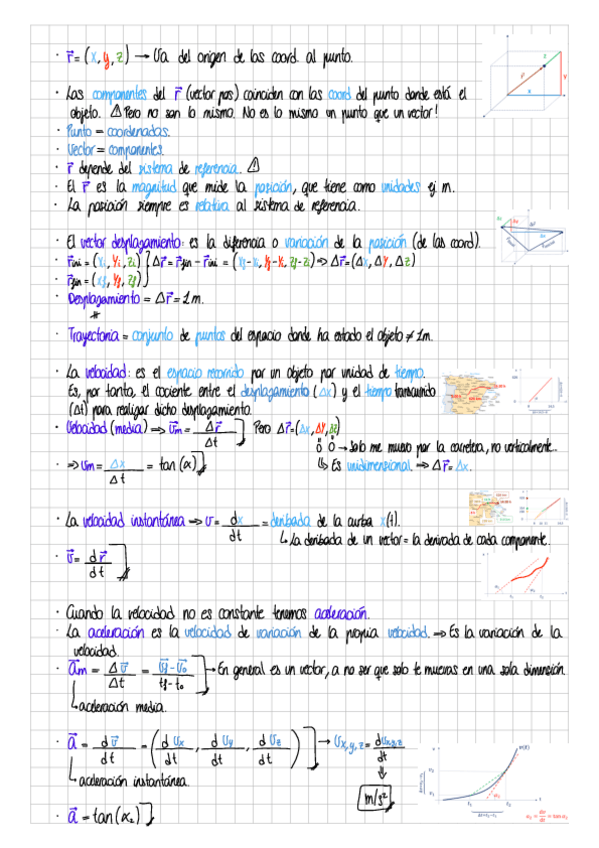 · r⃗ = (x, y, z) → Va del origen de las coord. al punto.
· Las componentes del r⃗ (vector pos) coinciden con las coord del punto donde está el
objeto. ⚠ Pero no son lo mismo. No es lo mismo un punto que un vector!
· Punto = coordenadas.
· Vector = componentes.
· r⃗ depende del sistema de referencia. ⚠
· El r⃗ es la magnitud que mide la posición, que tiene como unidades ej m.
· La posición siempre es relativa al sistema de referencia.
· El vector desplazamiento: es la diferencia o variación de la posición (de las coord).
· r⃗ini = (xi, yi, zi) } Δr⃗ = r⃗fin − r⃗ini = (xf-xi, yf-yi, zf-zi) ⇒ Δr⃗ = (Δx, Δy, Δz)
· r⃗fin = (xf, yf, zf)
· Desplazamiento = Δr⃗ = 1m.
· Trayectoria = conjunto de puntos del espacio donde ha estado el objeto ≠ 1m.
· La velocidad: es el espacio recorrido por un objeto por unidad de tiempo.
Es, por tanto, el cociente entre el desplazamiento (Δx) y el tiempo transcurrido
(Δt) para realizar dicho desplazamiento.
· Velocidad (media) ⇒ v⃗m = Δr⃗ / Δt Pero Δr⃗ = (Δx, Δy, Δz)
0 0 → solo me muevo por la carretera, no verticalmente.
↳ Es unidimensional. ⇒ Δr⃗ = Δx.
· ⇒ vm = Δx / Δt = tan (α)
· La velocidad instantánea ⇒ v = dx / dt = deribada de la curba x(t).
↳ La deribada de un vector = la derivada de cada componente.
· v⃗ = dr⃗ / dt
· Cuando la velocidad no es constante tenemos aceleración.
· La aceleración es la velocidad de variación de la propia velocidad. ⇒ Es la variación de la
velocidad.
· a⃗m = Δv⃗ / Δt = v⃗f − v⃗0 / tf − t0 → En general es un vector, a no ser que solo te muevas en una sola dimensión
↳ aceleración media.
· a⃗ = dv⃗ / dt = (dvx / dt, dvy / dt, dvz / dt) → vx,y,z = dvx,y,z / dt
↳ aceleración instantánea.
m/s²
· a⃗ = tan(α2)